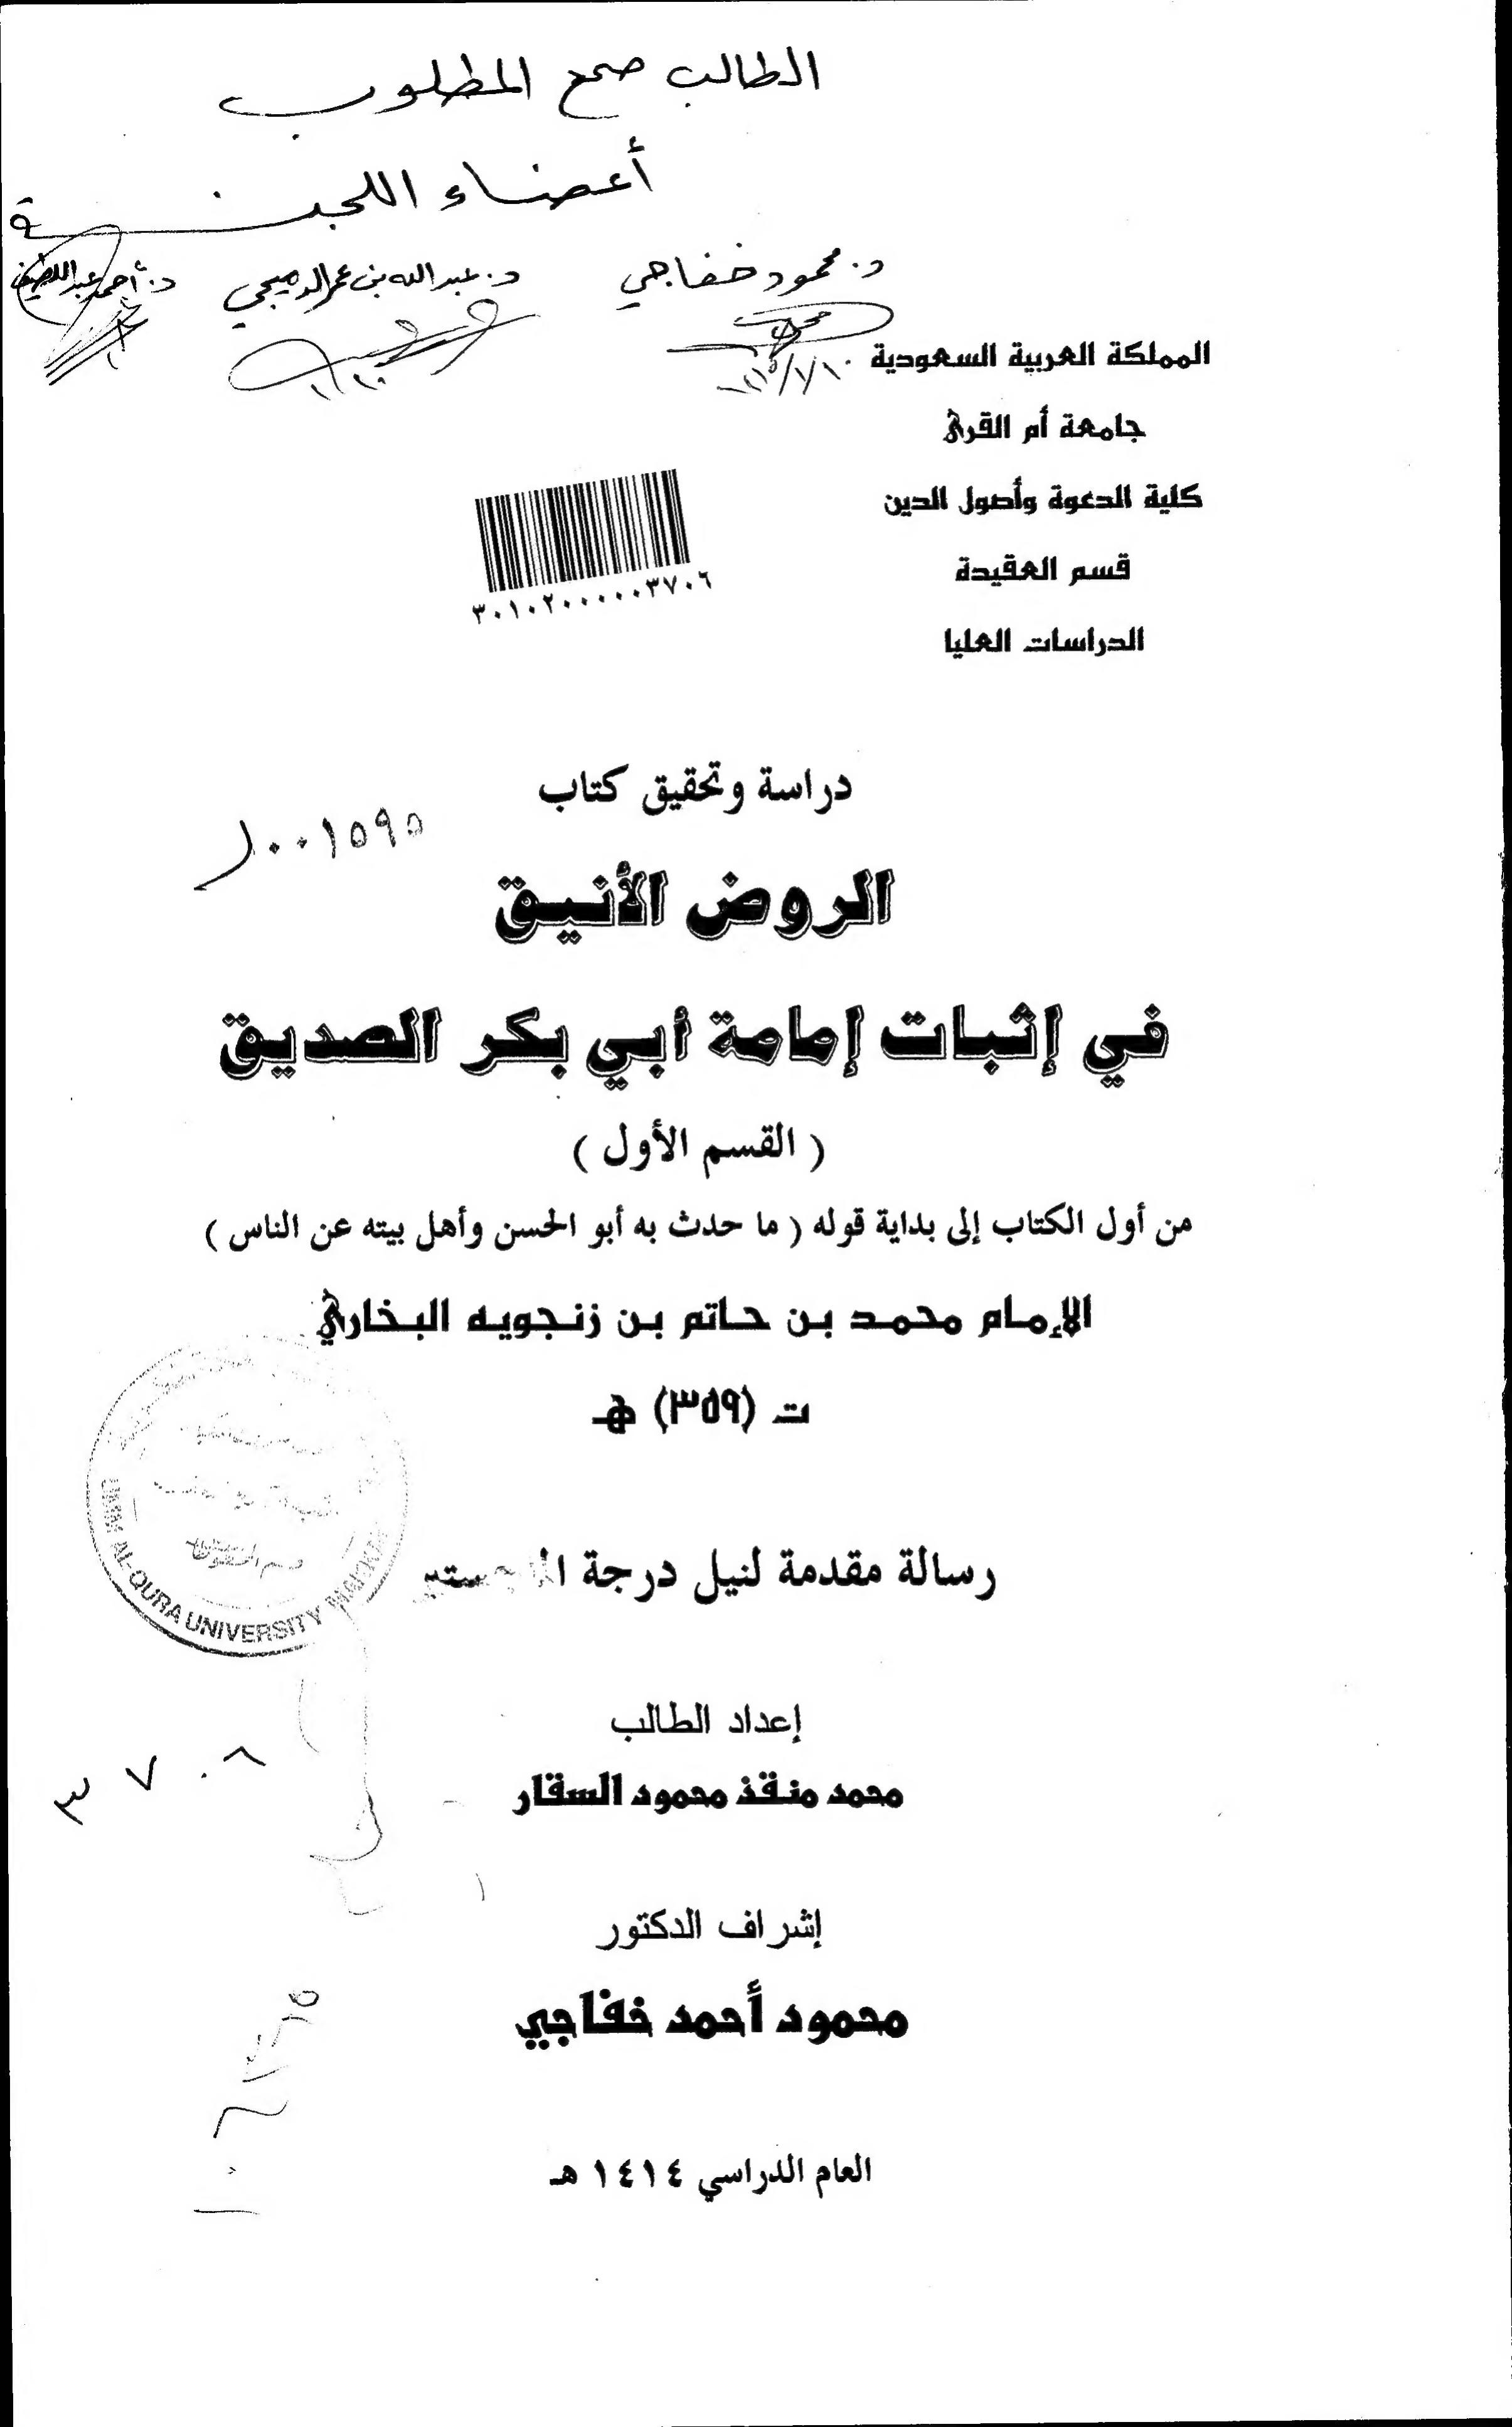 الطالب صحح المطلوب
أعضاء اللجنة
د. محمود خفاجي
د. عبد الله بن عمر الدميجي
د. أحمد عبد اللطيف
المملكة العربية السعودية
جامعة أم القرى
كلية الدعوة وأصول الدين
قسم العقيدة
الدراسات العليا
٣٠١٠٢٠٠٠٠٠٣٧٠٦
دراسة وتحقيق كتاب
٠٠١٥٩٥
الروض الأنيق
في إثبات إمامة أبي بكر الصديق
( القسم الأول )
من أول الكتاب إلى بداية قوله ( ما حدث به أبو الحسن وأهل بيته عن الناس )
الإمام محمد بن حاتم بن زنجويه البخاري
ت (٣٥٩) هـ
UMM AL-QURA UNIVERSITY
رسالة مقدمة لنيل درجة
إعداد الطالب
محمد منقذ محمود السقار
٣٧٠٨
إشراف الدكتور
محمود أحمد خفاجي
العام الدراسي ١٤١٤ هـ